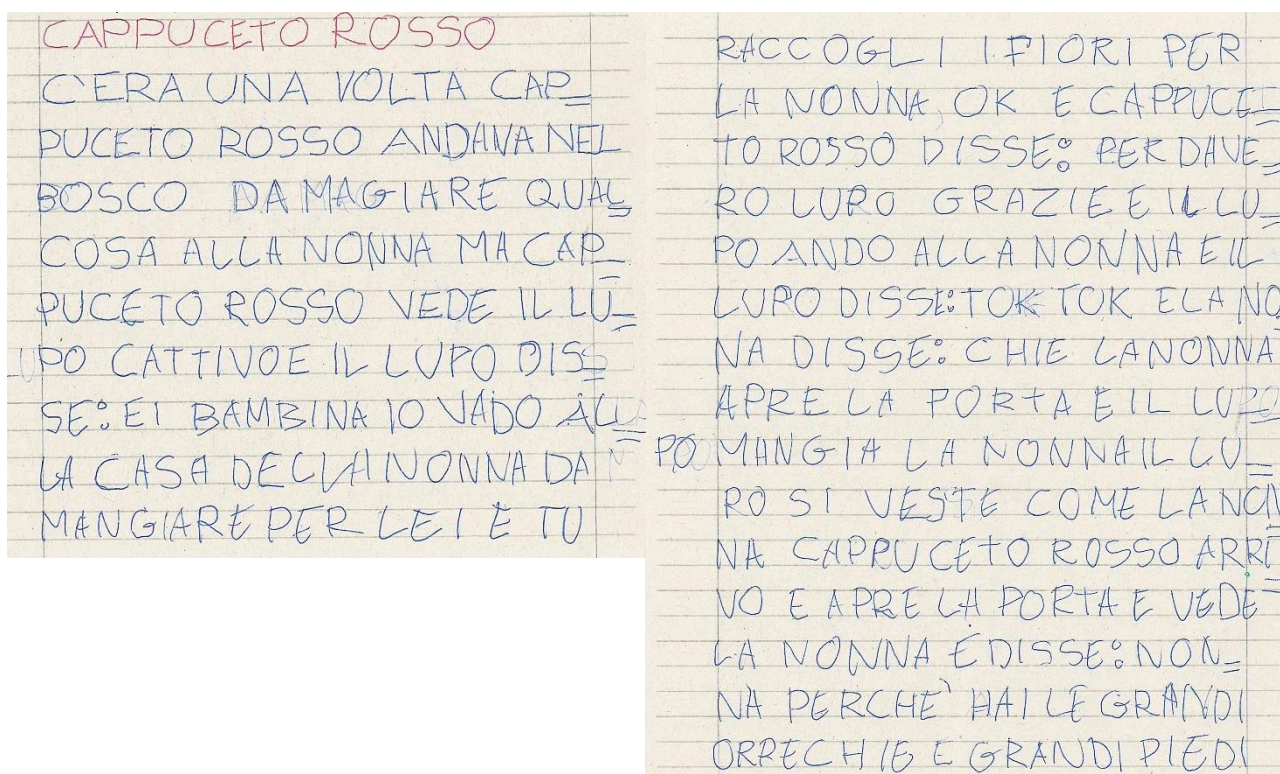 CAPPUCETO ROSSO
C'ERA UNA VOLTA CAP=
PUCETO ROSSO ANDAVA NEL
BOSCO DA MAGIARE QUAL=
COSA ALLA NONNA MA CAP=
PUCETO ROSSO VEDE IL LU=
PO CATTIVO E IL LUPO DIS=
SE: EI BAMBINA IO VADO AL=
LA CASA DELLA NONNA DA
MANGIARE PER LEI E TU
RACCOGLI I FIORI PER
LA NONNA, OK E CAPPUCE=
TO ROSSO DISSE: PER DAVE=
RO LUPO GRAZIE E IL LU=
PO ANDO ALLA NONNA E IL
LUPO DISSE: TOK TOK E LA NO
NA DISSE: CHI E LA NONNA
APRE LA PORTA E IL LU
PO MANGIA LA NONNA IL LU=
PO SI VESTE COME LA NON
NA CAPPUCETO ROSSO ARRI=
VO E APRE LA PORTA E VEDE
LA NONNA E DISSE: NON=
NA PERCHE' HAI LE GRANDI
ORRECHIE E GRANDI PIEDI